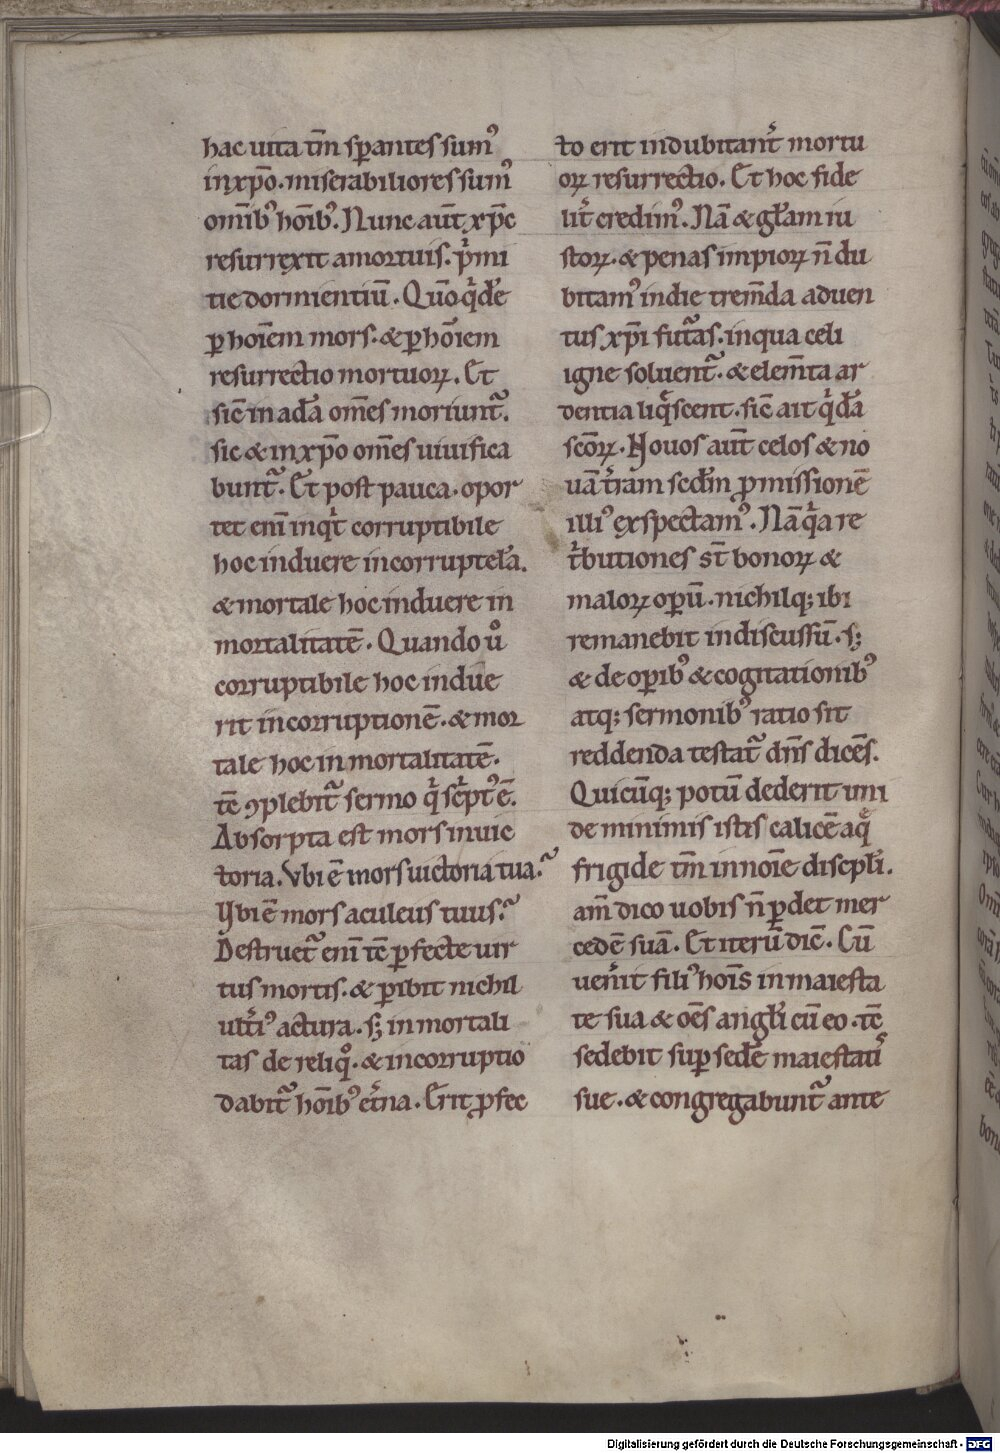 hac uita tm̄ sꝑantes sumꝰ
in xp̄o. miserabiliores sumꝰ
om̄ibꝰ hōibꝰ. Nunc aut̄ xp̄c
resurrexit a mortuis. p̍mi
tie dormientiū. Qūo q̍dē
ꝑ hoīem mors. & ꝑ hōiem
resurrectio mortuoꝝ. Et
sic̄ in adā om̄es moriunt᷑.
sic & in xp̄o om̄es uiuifica
bunt᷑. Et post pauca. opor
tet enī inq̍t corruptibile
hoc induere incorruptelā.
& mortale hoc induere in
mortalitatē. Quando uͦ
corruptibile hoc indue
rit incorruptionē. & mor
tale hoc inmortalitatē.
tē ꝯplebit᷑ sermo q̍ sc̍ptꝰ ē.
Absorpta est mors in uic
toria. Vbi ē mors uictoria tua?
Vbi ē mors aculeus tuus?
Destruet᷑ enī tē ꝑfecte uir
tus mortis. & ꝑibit nichil
ult̍iꝰ actura. sꝫ inmortali
tas de reliqͦ. & incorruptio
dabit᷑ hōibꝰ et̄na. Erit ꝑfec
to erit indubitant̄ mortu
oꝝ resurrectio. Et hoc fide
lit̄ credimꝰ. Nā & gl̄am iu
stoꝝ. & penas impioꝝ n̄ du
bitamꝰ in die trem̄da aduen
tus xp̄i futuras. in qua celi
igne soluent᷑. & elem̄ta ar
dentia liq̄scent. sic̄ ait q̍dā
sc̄oꝝ. Nouos aut̄ celos & no
uā t̄ram sedm̄ ꝓmissionē
illiꝰ exspectamꝰ. Nā q̍a re
t̍butiones st̄ bonoꝝ &
maloꝝ oꝑū. nichilqꝫ ibi
remanebit indiscussū. sꝫ
& de oꝑibꝰ & cogitationibꝰ
atqꝫ sermonibꝰ ratio sit
reddenda testat᷑ dn̄s dicēs.
Quicūqꝫ potū dederit uni
de minimis istis calicē aq̄
frigide tm̄ in noīe discipl̍i.
am̄ dico uobis n̄ ꝑdet mer
cedē suā. Et iterū dic̄. Cū
uen̍it filiꝰ hoīs in maiesta
te sua & oēs angl̍i cū eo. tē
sedebit suꝑ sedē maiestatis
sue. & congregabunt᷑ ante
Digitalisierung gefördert durch die Deutsche Forschungsgemeinschaft - DFG